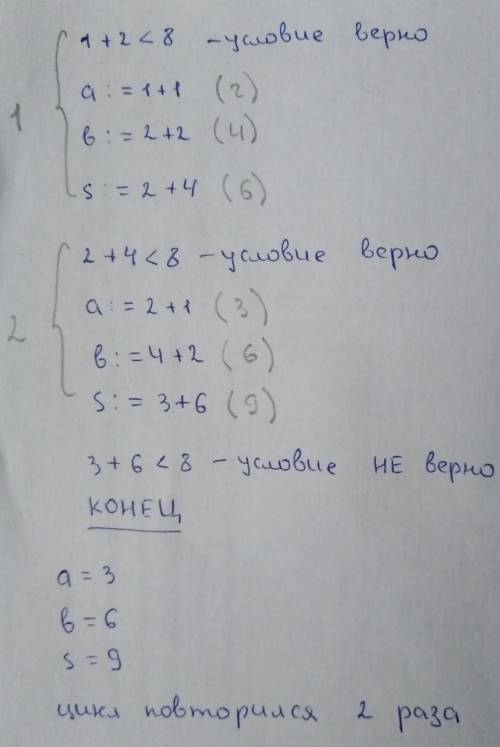 1
1 + 2 < 8 - условие верно
a := 1+1 (2)
в := 2+2 (4)
s := 2+4 (6)
2
2 + 4 < 8 - условие верно
a := 2+1 (3)
в := 4+2 (6)
s := 3+6 (9)
3 + 6 < 8 - условие НЕ верно
КОНЕЦ
a = 3
в = 6
s = 9
цикл повторился 2 раза